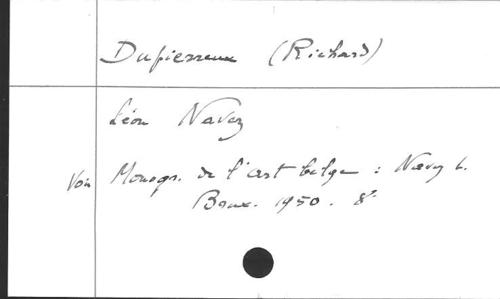 Dupierreux (Richard)
Léon Navez
Voir Monogr. de l'art belge : Navez L.
Brux. 1950. 8°.